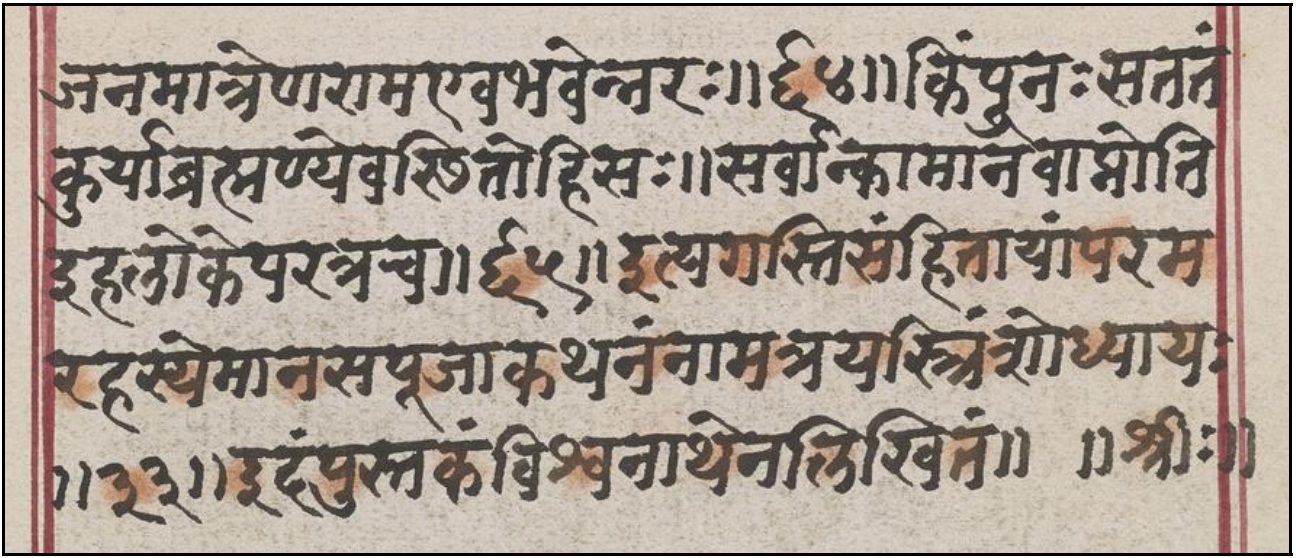 जनमात्रेणरामएवभवेन्नरः॥६४॥किंपुनःसततं
कुर्याब्रह्मण्येवस्थितोहिसः॥सर्वान्कामानवाप्नोति
इहलोकेपरत्रच॥६५॥इत्यगस्तिसंहितायांपरम
रहस्येमानसपूजाकथनंनामत्रयस्त्रिंशोध्यायः
॥३३॥इदंपुस्तकंविश्वनाथेनलिखितं॥ ॥श्रीः॥